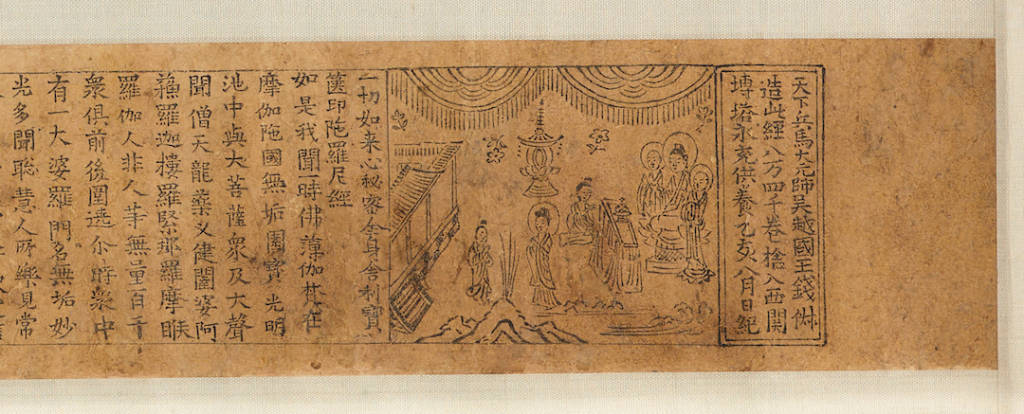 天下兵馬大元帥吳越國王錢俶
造此經八万四千卷捨入西關
塼塔永充供養乙亥八月日紀
一切如来心秘密全身舍利寶
篋印陁羅尼經
如是我聞一時佛薄伽梵在
摩伽陁國無垢園寶光明
池中與大菩薩衆及大聲
聞僧天龍藥叉健闥婆阿
蘓羅迦樓羅緊那羅摩睺
羅伽人非人等無量百千
衆俱前後圍遶尒時衆中
有一大婆羅門名無垢妙
光多聞聡慧人所樂見常